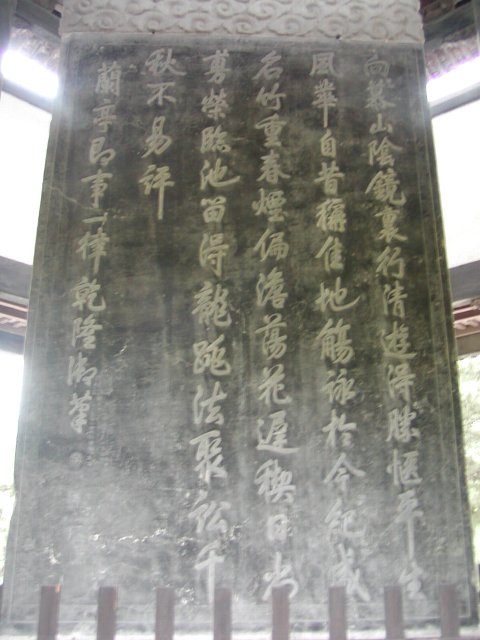 向慕山陰鏡裏行清遊得勝愜平生
風華自昔稱佳地觴詠於今紀盛
名竹重春煙偏澹蕩花遲禊日尚
敷榮臨池留得龍跳法聚訟千
秋不易評
蘭亭即事一律乾隆御筆